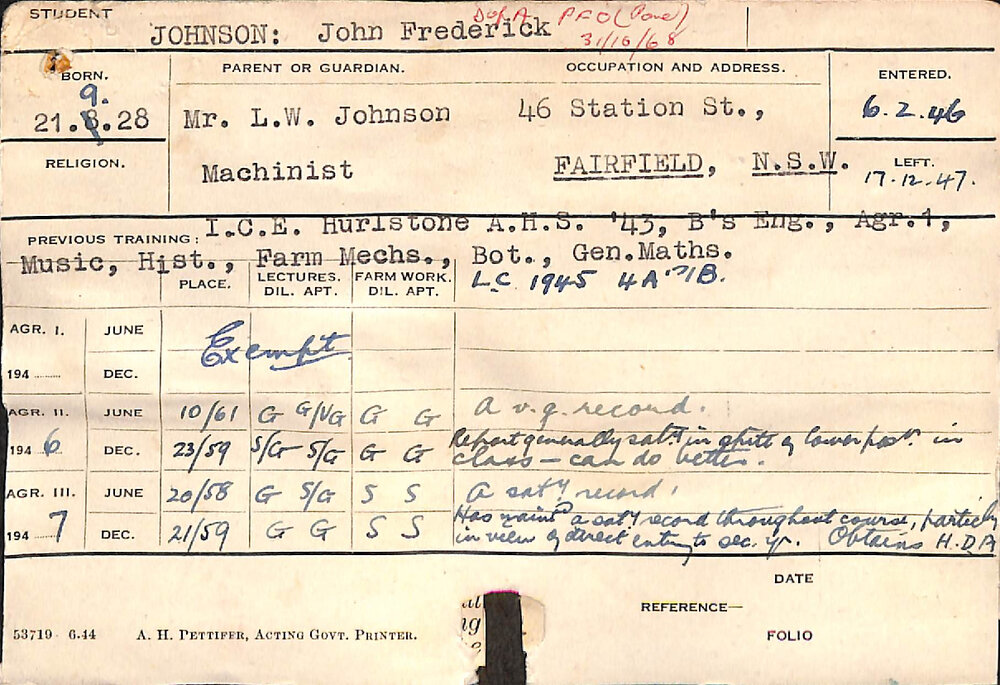 STUDENT
JOHNSON: John Frederick
D of A PFO (Pove)
31/10/68
BORN.
PARENT OR GUARDIAN.
OCCUPATION AND ADDRESS.
ENTERED.
9.
21.8.28
Mr. L.W. Johnson
46 Station St.,
6.2.46
RELIGION.
Machinist
FAIRFIELD, N.S.W.
LEFT.
17.12.47.
PREVIOUS TRAINING: I.C.E. Hurlstone A.H.S. '43, B's Eng., Agr.1,
Music, Hist., Farm Mechs., Bot., Gen.Maths.
L.C. 1945 4A's 1B.
PLACE.
LECTURES.
DIL. APT.
FARM WORK.
DIL. APT.
AGR. I. JUNE
194 ........ DEC.
Exempt
AGR. II. JUNE 10/61 G G/VG G G A v.g. record.
1946 DEC. 23/59 S/G S/G G G Report generally sat'y in spite of lower pos'n in
class — can do better.
AGR. III. JUNE 20/58 G S/G S S A sat'y record.
1947 DEC. 21/59 G G S S Has maint'd a sat'y record throughout course, particly
in view of direct entry to sec. yr. Obtains H.D.A
DATE
REFERENCE—
FOLIO
53719 6.44 A. H. PETTIFER, ACTING GOVT. PRINTER.